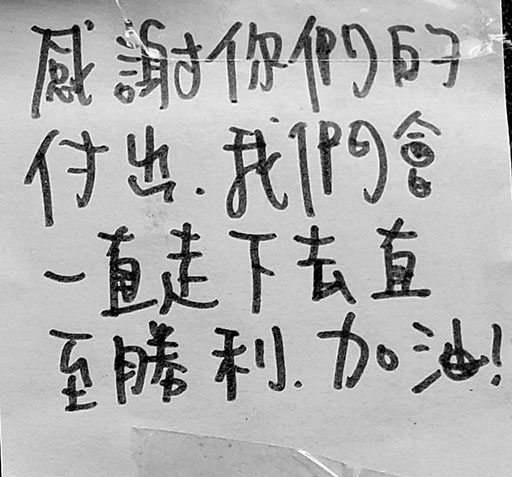 感謝你們的
付出.我們會
一直走下去直
至勝利.加油!